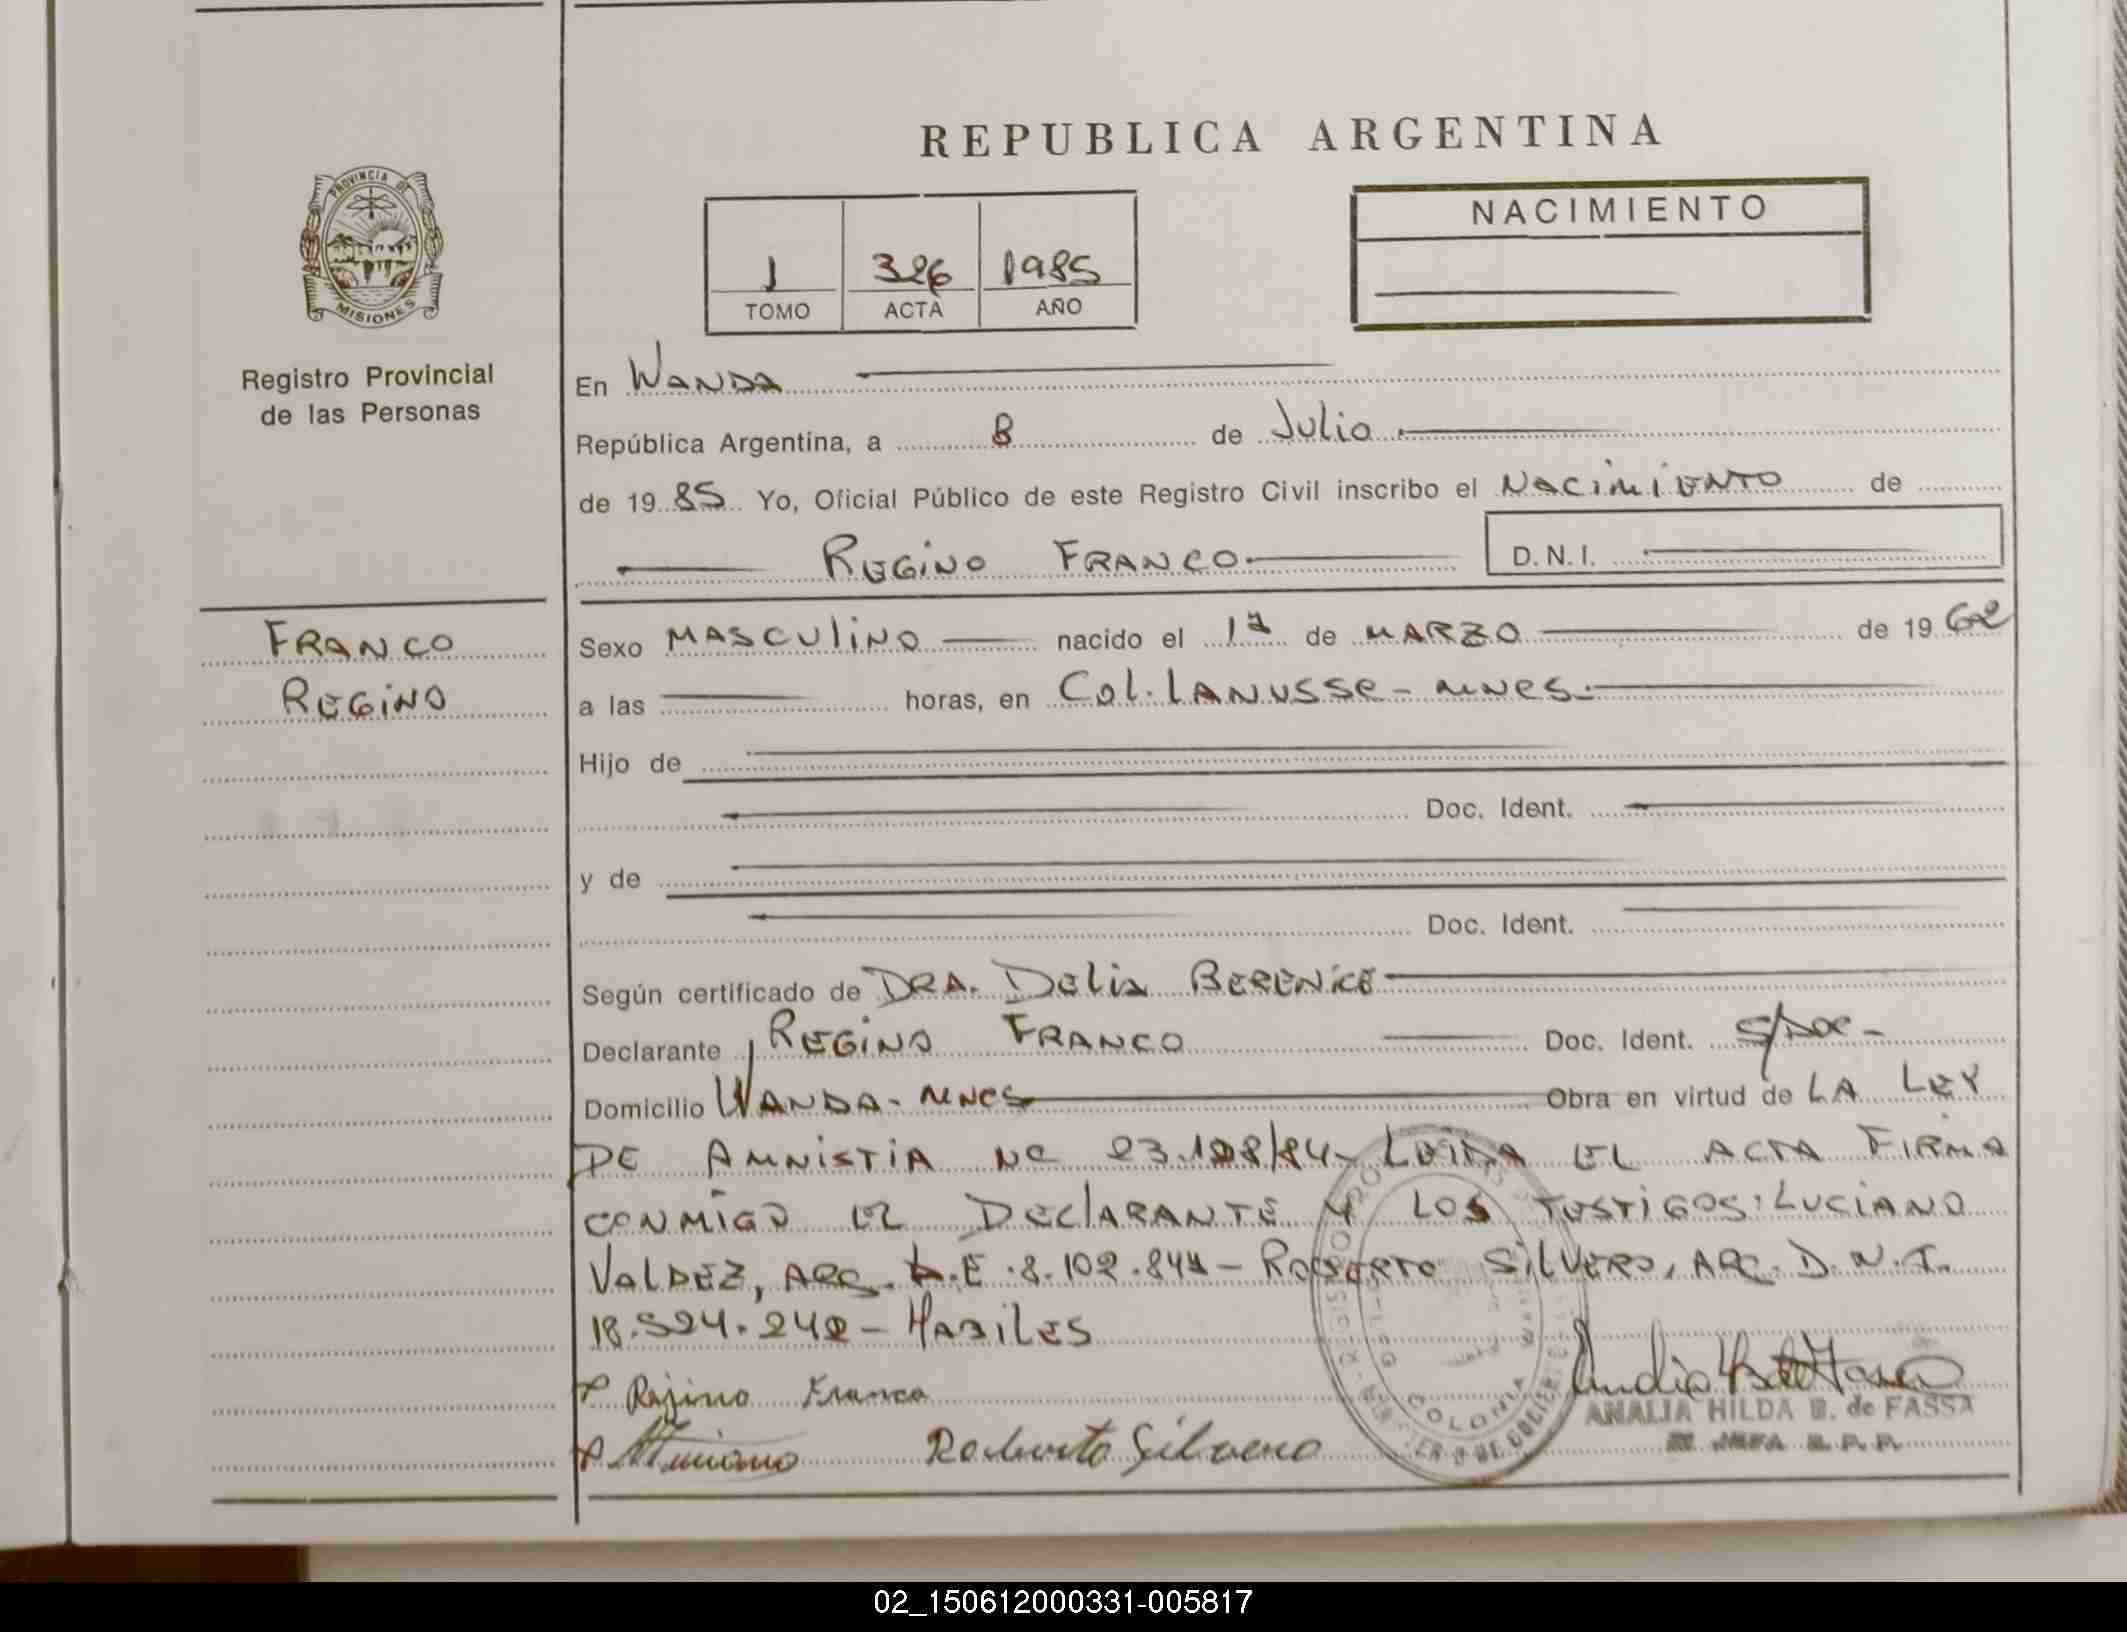 REPUBLICA ARGENTINA
PROVINCIA DE
MISIONES
Registro Provincial
de las Personas
1 326 1985
TOMO ACTA AÑO
NACIMIENTO
En WANDA
República Argentina, a 8 de Julio
de 19 85 Yo, Oficial Público de este Registro Civil inscribo el NACIMIENTO de
REGINO FRANCO D.N.I.
FRANCO
REGINO
Sexo MASCULINO nacido el 1º de MARZO de 19 62
a las horas, en Col. LANUSSE - MNES.
Hijo de
Doc. Ident.
y de
Doc. Ident.
Según certificado de DRA. DELIA BERENICE
Declarante REGINO FRANCO Doc. Ident. S/DOC-
Domicilio WANDA - MNES Obra en virtud de LA LEY
DE AMNISTIA Nº 23.128/84- LEIDA EL ACTA FIRMA
CONMIGO EL DECLARANTE Y LOS TESTIGOS: LUCIANO
VALDEZ, ARG. L.E. 8.102.844 - ROBERTO SILVERO, ARG. D.N.I.
18.524.242 - HABILES
Rejino Franco
Roberto Silvero
COLONIA
ANALIA HILDA B. de FASSA
02_150612000331-005817